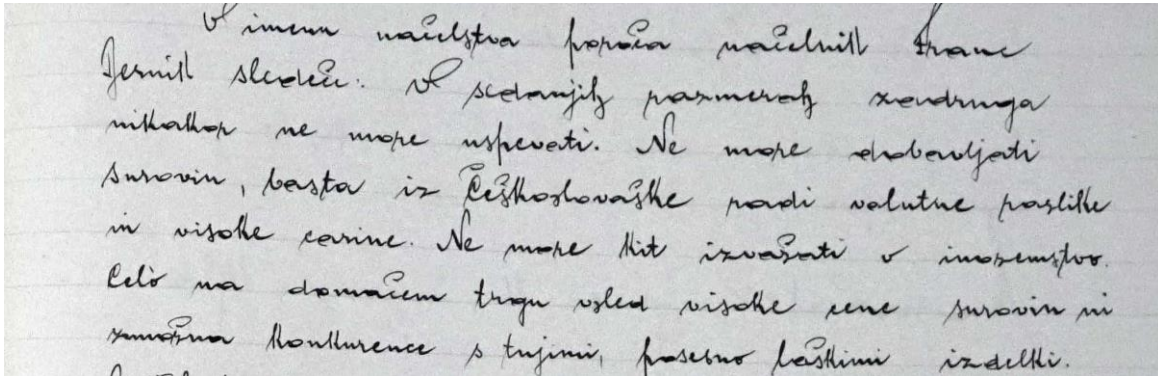 V imenu načelstva poroča načelnik Franc
Jernik sledeče: V sedanjih razmerah zadruga
nikakor ne more uspevati. Ne more dobavljati
surovin, basta iz Češkoslovaške radi valutne razlike
in visoke carine. Ne more kit izvažati v inozemstvo.
Celo na domačem trgu vsled visoke cene surovin ni
zmožna konkurence s tujimi, posebno laškimi izdelki.